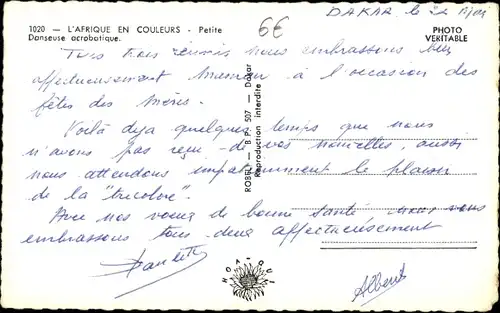 1020 - L'AFRIQUE EN COULEURS - Petite
Danseuse acrobatique.
6€
DAKAR le
PHOTO
VERITABLE
Tous trois réunis nous embrassons bien
affectueusement maman à l'occasion des
fêtes des mères.
Voilà déja quelque temps que nous
n'avons pas reçu de vos nouvelles, aussi
nous attendons impatiemment le plaisir
de la "tricolore".
Avec nos voeux de bonne santé nous vous
embrassons tous deux affectueusement
Paulette
Albert
ROBEL - B.P. 507 - Dakar
Reproduction interdite
HOA-QUI